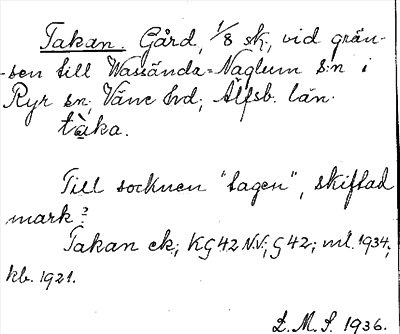 Takan. Gård, 1/8 sk., vid grän-
-sen till Wassända-Naglum s:n i
Ryr sn, Väne hd; Älfsb. län.
tàka.
Till socknen "tagen", skiftad
mark?
Takan ek.; KG 42 NV; G 42; ml. 1934;
kb. 1921.
L. M. S. 1936.